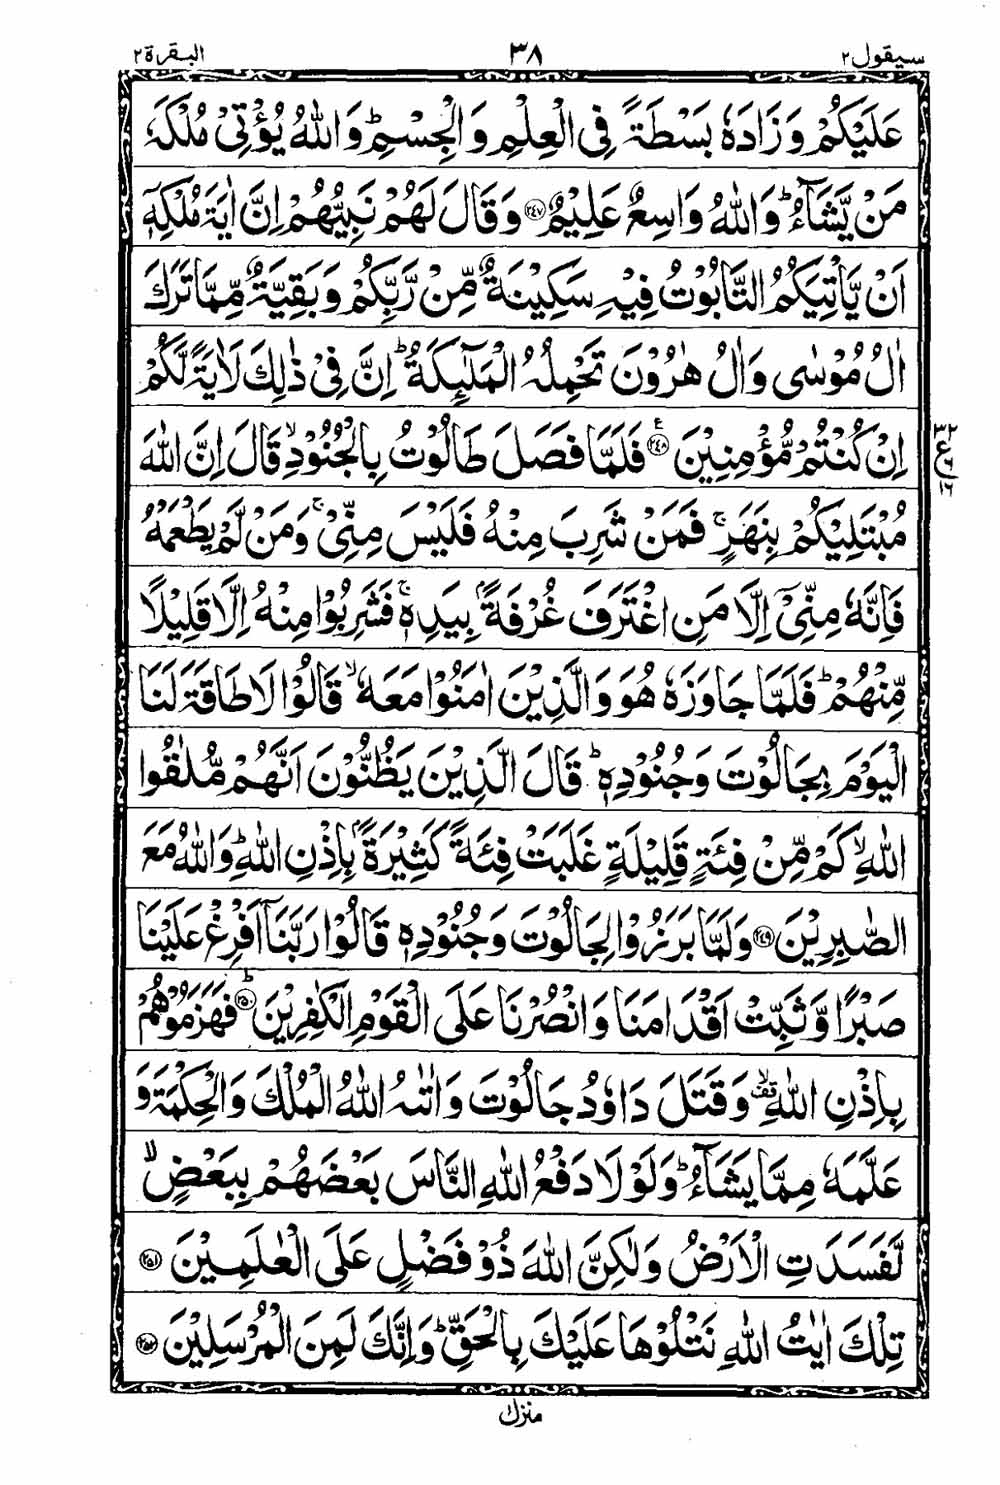 سيقول ٢ ٣٨ البقرة ٢
عَلَيْكُمْ وَزَادَهٗ بَسْطَةً فِي الْعِلْمِ وَالْجِسْمِ ؕ وَاللّٰهُ يُؤْتِيْ مُلْكَهٗ
مَنْ يَّشَآءُ ؕ وَاللّٰهُ وَاسِعٌ عَلِيْمٌ ﴿٢٤٧﴾ وَقَالَ لَهُمْ نَبِيُّهُمْ اِنَّ اٰيَةَ مُلْكِهٖٓ
اَنْ يَّاْتِيَكُمُ التَّابُوْتُ فِيْهِ سَكِيْنَةٌ مِّنْ رَّبِّكُمْ وَبَقِيَّةٌ مِّمَّا تَرَكَ
اٰلُ مُوْسٰى وَاٰلُ هٰرُوْنَ تَحْمِلُهُ الْمَلٰٓئِكَةُ ؕ اِنَّ فِيْ ذٰلِكَ لَاٰيَةً لَّكُمْ
اِنْ كُنْتُمْ مُّؤْمِنِيْنَ ﴿٢٤٨﴾ ع فَلَمَّا فَصَلَ طَالُوْتُ بِالْجُنُوْدِ ۙ قَالَ اِنَّ اللّٰهَ
٣٢ ع ٦ ١٦
مُبْتَلِيْكُمْ بِنَهَرٍ ۚ فَمَنْ شَرِبَ مِنْهُ فَلَيْسَ مِنِّيْ ۚ وَمَنْ لَّمْ يَطْعَمْهُ
فَاِنَّهٗ مِنِّيْٓ اِلَّا مَنِ اغْتَرَفَ غُرْفَةًۢ بِيَدِهٖ ۚ فَشَرِبُوْا مِنْهُ اِلَّا قَلِيْلًا
مِّنْهُمْ ؕ فَلَمَّا جَاوَزَهٗ هُوَ وَالَّذِيْنَ اٰمَنُوْا مَعَهٗ ۙ قَالُوْا لَا طَاقَةَ لَنَا
الْيَوْمَ بِجَالُوْتَ وَجُنُوْدِهٖ ؕ قَالَ الَّذِيْنَ يَظُنُّوْنَ اَنَّهُمْ مُّلٰقُوا
اللّٰهِ ۙ كَمْ مِّنْ فِئَةٍ قَلِيْلَةٍ غَلَبَتْ فِئَةً كَثِيْرَةًۢ بِاِذْنِ اللّٰهِ ؕ وَاللّٰهُ مَعَ
الصّٰبِرِيْنَ ﴿٢٤٩﴾ وَلَمَّا بَرَزُوْا لِجَالُوْتَ وَجُنُوْدِهٖ قَالُوْا رَبَّنَآ اَفْرِغْ عَلَيْنَا
صَبْرًا وَّثَبِّتْ اَقْدَامَنَا وَانْصُرْنَا عَلَى الْقَوْمِ الْكٰفِرِيْنَ ﴿٢٥٠﴾ ؕ فَهَزَمُوْهُمْ
بِاِذْنِ اللّٰهِ ۙ قف وَقَتَلَ دَاوٗدُ جَالُوْتَ وَاٰتٰىهُ اللّٰهُ الْمُلْكَ وَالْحِكْمَةَ وَ
عَلَّمَهٗ مِمَّا يَشَآءُ ؕ وَلَوْلَا دَفْعُ اللّٰهِ النَّاسَ بَعْضَهُمْ بِبَعْضٍ ۙ
لَّفَسَدَتِ الْاَرْضُ وَلٰكِنَّ اللّٰهَ ذُوْ فَضْلٍ عَلَى الْعٰلَمِيْنَ ﴿٢٥١﴾
تِلْكَ اٰيٰتُ اللّٰهِ نَتْلُوْهَا عَلَيْكَ بِالْحَقِّ ؕ وَاِنَّكَ لَمِنَ الْمُرْسَلِيْنَ ﴿٢٥٢﴾
منزل